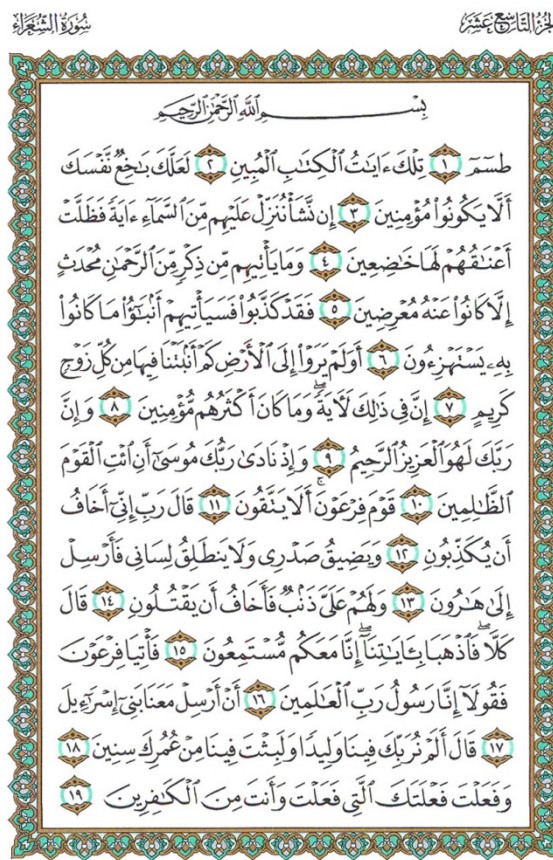 سُورَةُ الشُّعَرَاءِ الجُزْءُ التَّاسِعَ عَشَرَ
بِسْمِ اللَّهِ الرَّحْمَٰنِ الرَّحِيمِ
طسٓمٓ ١ تِلْكَ ءَايَٰتُ ٱلْكِتَٰبِ ٱلْمُبِينِ ٢ لَعَلَّكَ بَٰخِعٌ نَّفْسَكَ
أَلَّا يَكُونُوا۟ مُؤْمِنِينَ ٣ إِن نَّشَأْ نُنَزِّلْ عَلَيْهِم مِّنَ ٱلسَّمَآءِ ءَايَةً فَظَلَّتْ
أَعْنَٰقُهُمْ لَهَا خَٰضِعِينَ ٤ وَمَا يَأْتِيهِم مِّن ذِكْرٍ مِّنَ ٱلرَّحْمَٰنِ مُحْدَثٍ
إِلَّا كَانُوا۟ عَنْهُ مُعْرِضِينَ ٥ فَقَدْ كَذَّبُوا۟ فَسَيَأْتِيهِمْ أَنۢبَٰٓؤُا۟ مَا كَانُوا۟
بِهِۦ يَسْتَهْزِءُونَ ٦ أَوَلَمْ يَرَوْا۟ إِلَى ٱلْأَرْضِ كَمْ أَنۢبَتْنَا فِيهَا مِن كُلِّ زَوْجٍ
كَرِيمٍ ٧ إِنَّ فِى ذَٰلِكَ لَءَايَةً ۖ وَمَا كَانَ أَكْثَرُهُم مُّؤْمِنِينَ ٨ وَإِنَّ
رَبَّكَ لَهُوَ ٱلْعَزِيزُ ٱلرَّحِيمُ ٩ وَإِذْ نَادَىٰ رَبُّكَ مُوسَىٰٓ أَنِ ٱئْتِ ٱلْقَوْمَ
ٱلظَّٰلِمِينَ ١٠ قَوْمَ فِرْعَوْنَ ۚ أَلَا يَتَّقُونَ ١١ قَالَ رَبِّ إِنِّىٓ أَخَافُ
أَن يُكَذِّبُونِ ١٢ وَيَضِيقُ صَدْرِى وَلَا يَنطَلِقُ لِسَانِى فَأَرْسِلْ
إِلَىٰ هَٰرُونَ ١٣ وَلَهُمْ عَلَىَّ ذَنۢبٌ فَأَخَافُ أَن يَقْتُلُونِ ١٤ قَالَ
كَلَّا ۖ فَٱذْهَبَا بِـَٔايَٰتِنَآ ۖ إِنَّا مَعَكُم مُّسْتَمِعُونَ ١٥ فَأْتِيَا فِرْعَوْنَ
فَقُولَآ إِنَّا رَسُولُ رَبِّ ٱلْعَٰلَمِينَ ١٦ أَنْ أَرْسِلْ مَعَنَا بَنِىٓ إِسْرَٰٓءِيلَ
١٧ قَالَ أَلَمْ نُرَبِّكَ فِينَا وَلِيدًا وَلَبِثْتَ فِينَا مِنْ عُمُرِكَ سِنِينَ ١٨
وَفَعَلْتَ فَعْلَتَكَ ٱلَّتِى فَعَلْتَ وَأَنتَ مِنَ ٱلْكَٰفِرِينَ ١٩